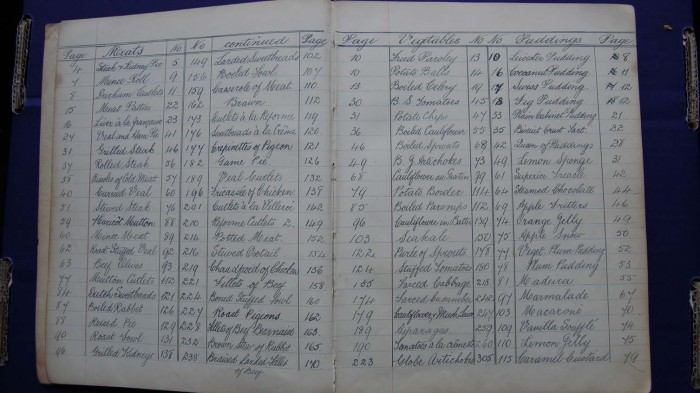 Page Meats No No continued Page
4 Steak & Kidney Pie 5 149 Larded Sweetbreads 102
4 Mince Roll 9 156 Boiled Fowl 107
8 Durham Cutlets 11 159 Casserole of Meat 110
15 Meat Patties 22 162 Brawn 112
16 Liver à la française 23 173 Cutlets à la Reforme 119
24 Veal and Ham Pie 41 176 Sweetbreads à la Crème 120
31 Grilled Steak 46 177 Crepinettes of Pigeon 121
37 Rolled Steak 56 182 Game Pie 126
38 of Cold Meat 57 189 Veal Cutlets 132
40 Curried Veal 60 196 Fricassee of Chicken 138
51 Stewed Steak 76 201 Cutlets à la Villeroi 142
59 Haricot Mutton 88 210 Reforme Cutlets 2. 149
60 Mince Meat 89 214 Potted Meat 152
62 Stuffed Veal 92 216 Stewed Oxtail 154
63 Beef Olives 93 219 Chaudfroid of Chicken 156
77 Mutton Cutlets 112 221 Fillets of Beef 158
84 Sweetbreads 121 224 Boned Stuffed Fowl 160
87 Boiled Rabbit 126 227 Roast Pigeons 162
88 Raised Pie 129 228 Fillet of Beef Bernaise 163
90 Roast Fowl 131 232 Brown Stew of Rabbit 165
96 Grilled Kidneys 138 238 Braised Larded Fillet of Beef 170
Page Vegetables No No Puddings Page
10 Fried Parsley 13 10 Leicester Pudding 8
10 Potato Balls 14 16 Cocoanut Pudding 11
10 Boiled Celery 19 17 Swiss Pudding 12
30 B. S. Tomatoes 45 18 Fig Pudding 12
31 Potato Chips 47 33 Plain Cabinet Pudding 21
36 Boiled Cauliflower 55 35 Biscuit Crust Tart 22
46 Boiled Sprouts 68 42 Queen of Puddings 28
49 B. J. Artichokes 73 49 Lemon Sponge 31
68 Cauliflower au Gratin 99 61 Superior Treacle 42
79 Potato Border 114 64 Steamed Chocolate 44
85 Boiled Parsnips 112 69 Apple Fritters 46
96 Cauliflower in Batter 139 74 Orange Jelly 49
103 Seakale 150 75 Apple Snow 50
122 Purée of Sprouts 178 77 Veget. Plum Pudding 52
124 Stuffed Tomatoes 180 78 Plum Pudding 53
155 Forced Cabbage 218 81 Madeira 55
174 Forced Cucumber 242 97 Marmalade 67
179 Cauliflower 247 103 Macaroni 70
189 Asparagus 259 109 Vanilla Soufflé 74
190 Tomatoes à la crème 260 110 Lemon Jelly 75
223 Globe Artichokes 305 115 Caramel Custard 79